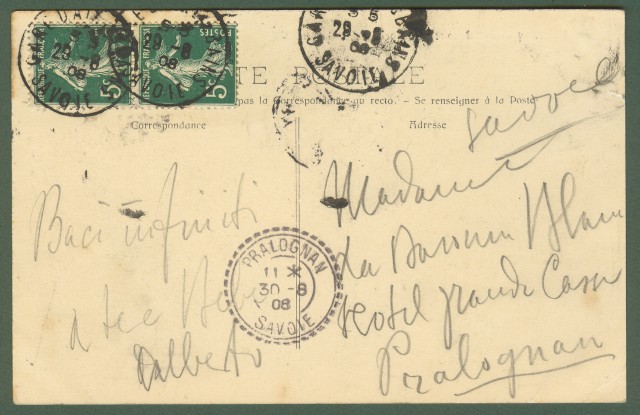 CARTE POSTALE
pas la Correspondance au recto. - Se renseigner à la Poste
Correspondance
Adresse
REPUBLIQUE FRANÇAISE
POSTES
5c
5
28 -8
08
SAVOIE
PRALOGNAN
11 *
30 -8
08
SAVOIE
Baci infiniti
a te e
Dalberto
Savoie
Madame
La Baronne Blanc
Hotel grande Casse
Pralognan